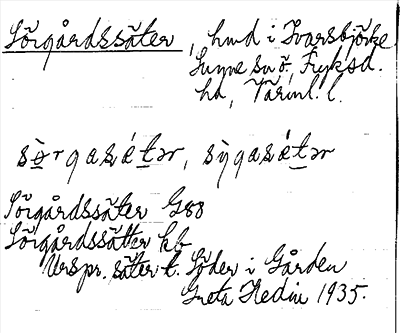 Sörgårdssäter, hmd i Ivarsbjörke
Sunne sn ö, Fryksd.
hd, Värml. l.
sø̀rgasét̠ər, sỳgasét̠ər
Sörgårdssäter G88
Sörgårdssätter kb
Urspr. säter t. Söder i Gården
Greta Hedin 1935.